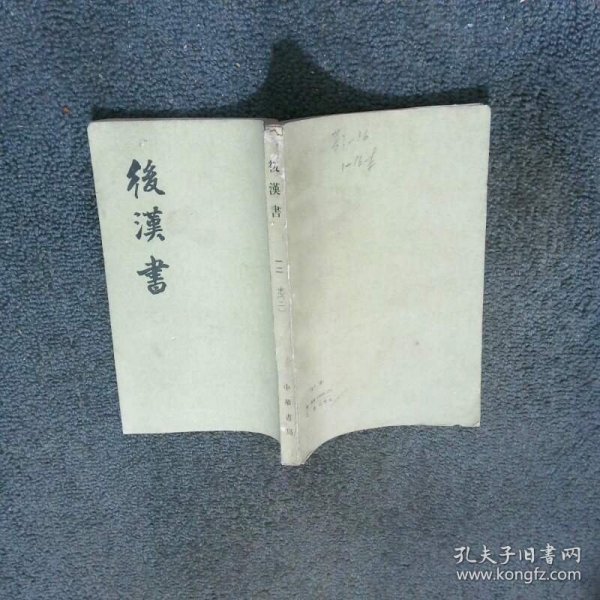 後漢書
後漢書
一二
志(三)
中華書局
孔夫子旧书网
www.kongfz.com